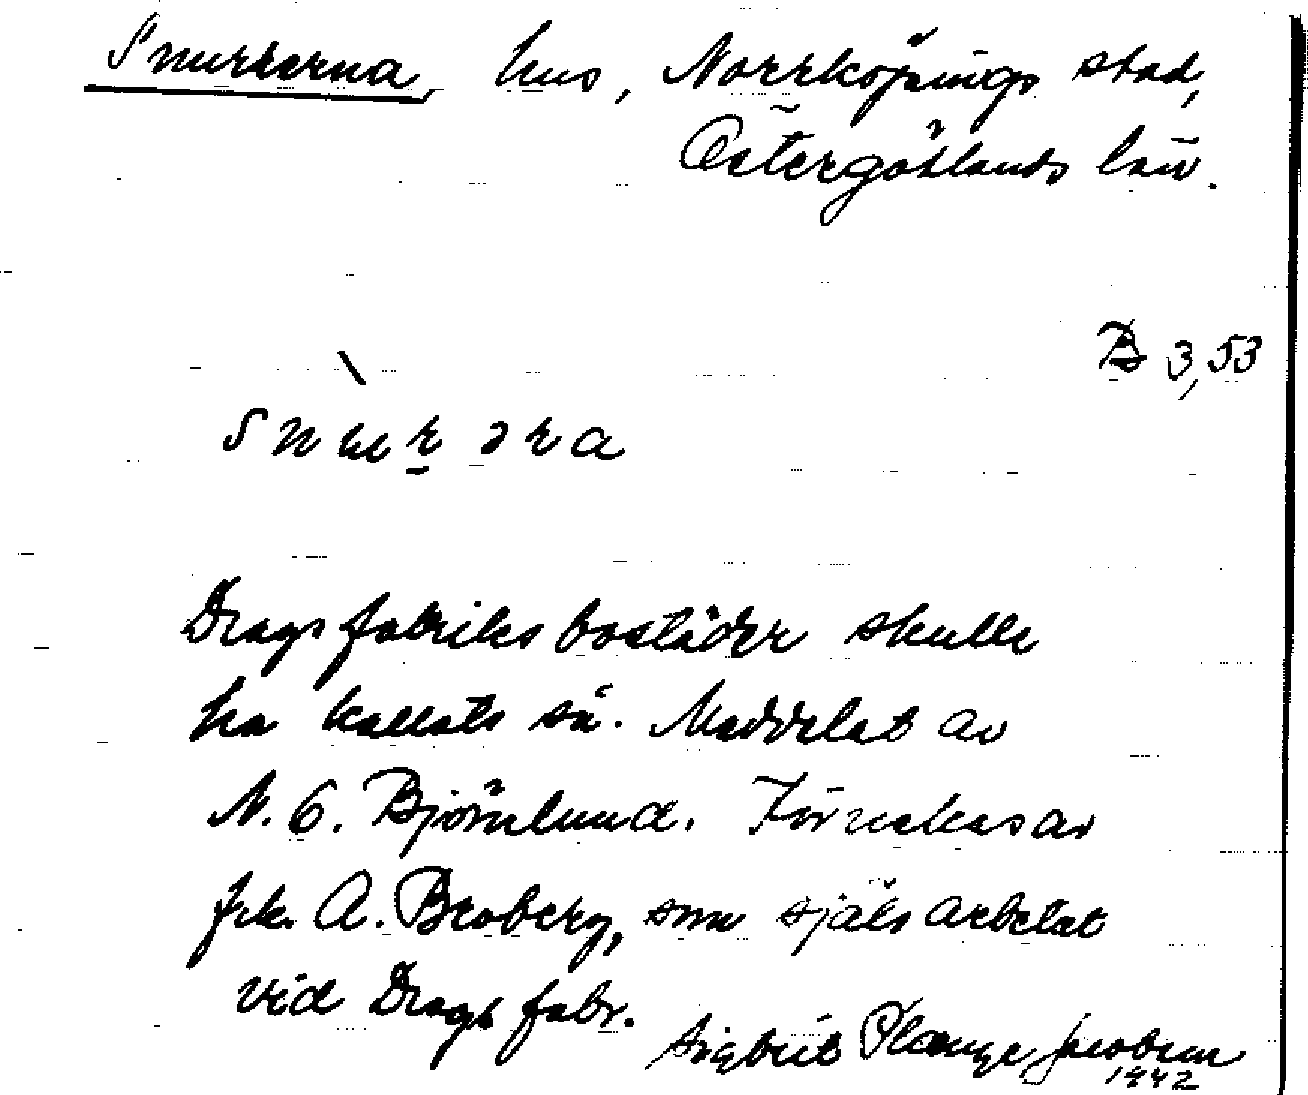 Snurrerna, hus, Norrköpings stad,
Östergötlands län.
B 3,53
Snurəra
Drags fabriks bostäder skulle
ha kallats så. Meddelat av
N. G. Björnlund. Förnekas av
frk. A. Broberg, som själv arbetat
vid Drags fabr.
Sigbrit Plænge Jacobson
1942